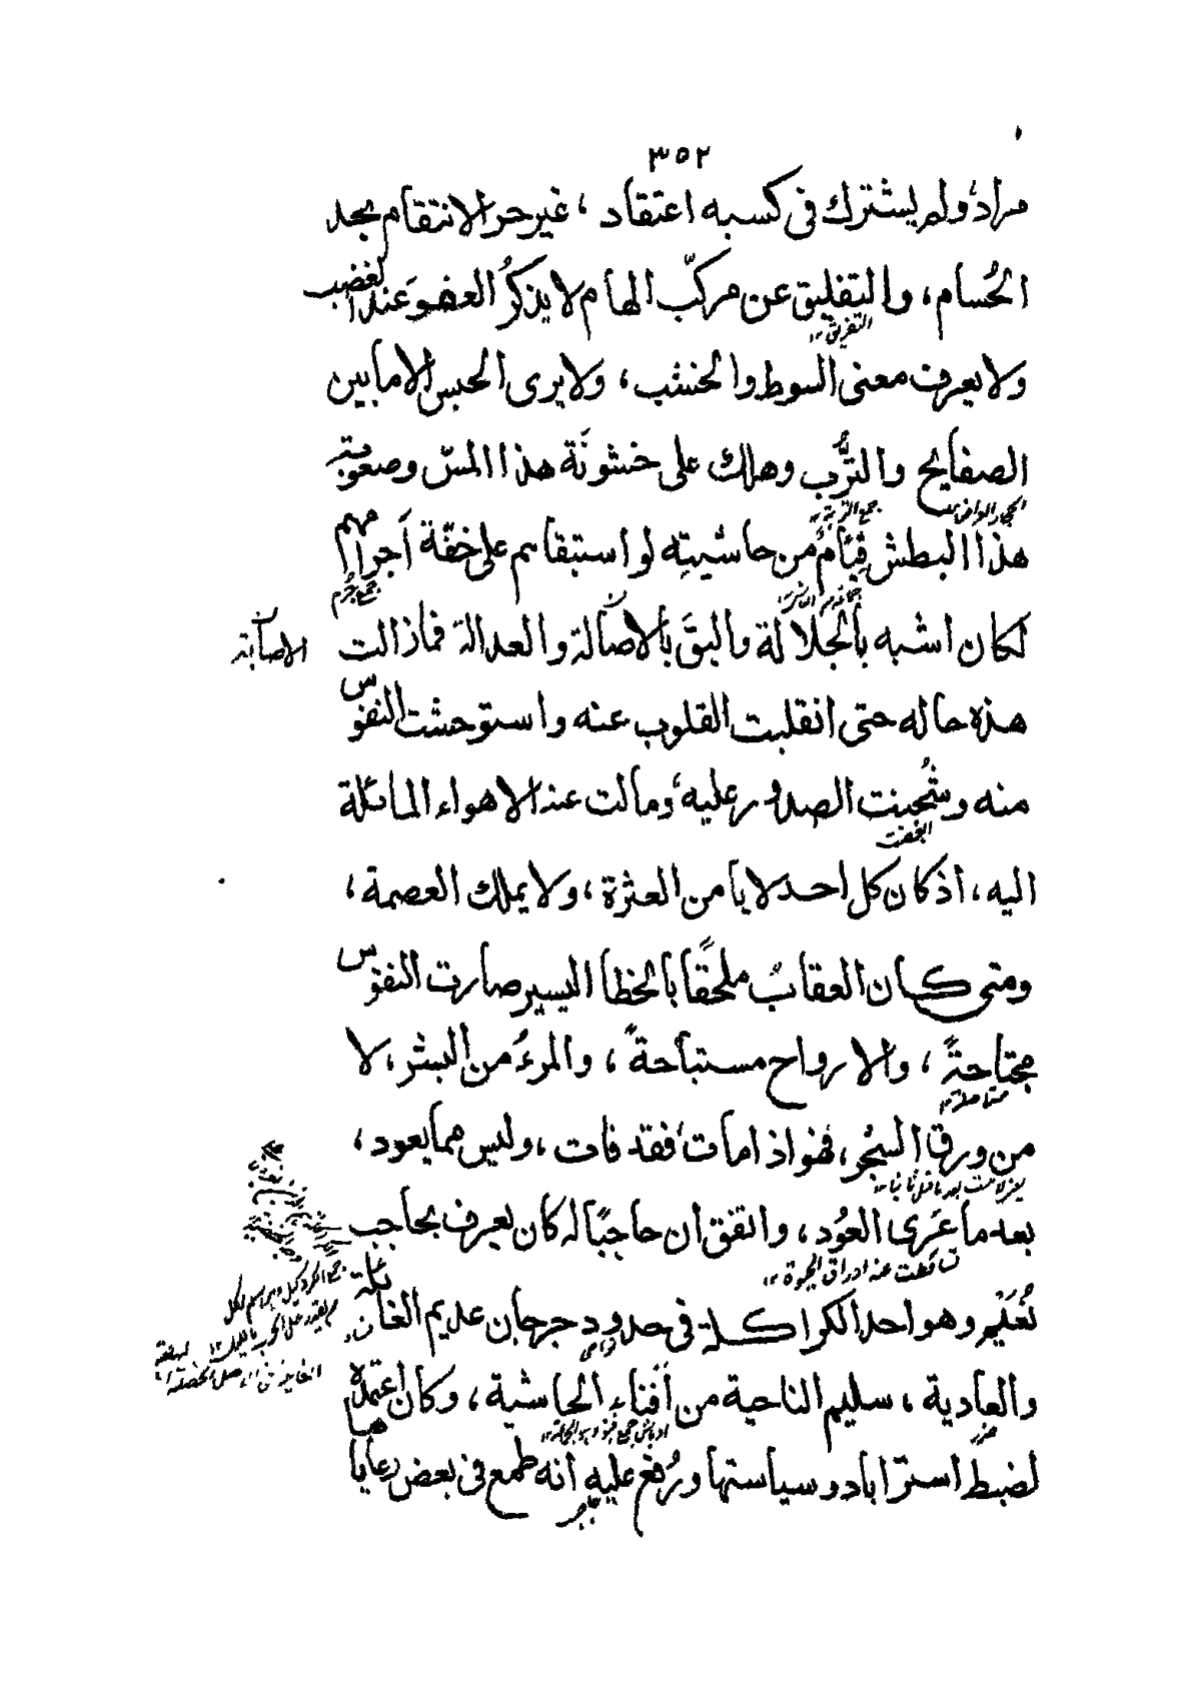 ٣٥٢
مراد، ولم يشترك فى كسبه اعتقاد، غير حر الانتقام بحد
الحُسام، والتفليق عن مركّب الهام لا يذكرُ العفوَ عند الغضب
التفريق ١٢
ولا يعرف معنى السوط والخشب، ولا يرى الحبس الا ما بين
الصفايح والتُّرب وهلك على خشونَة هذا المسّ وصعوبة
جمع التربة ١٢
هذا البطش فِئامٌ من حاشيتِه لو استبقاهم على خفّة أجرامهم
جمع جرم
لكان اشبه بالجلالة واليقَ بالاصَالة والعدالة فما زالت
الاصابة
هذه حاله حتى انقلبت القلوب عنه واستوحشت النفوس
منه وشُحِنت الصدور عليه، ومالت عنه الاهواء المائلة
اليه، اذ كان كل احد لا يامن العثرة، ولا يملك العصمة،
ومتى كان العقابُ ملحَقًا بالخطا اليسير صارت النفوس
مجتاحةً، والارواح مستباحةً، والمرءُ من البشر، لا
مستاصلة ١٢
من ورق الشجر، فهو اذا مات، فقد فات، وليس مما يعود،
بعد ما عَرَى العوُد، واتفق ان حاجبًا له كان يعرف بحاجب
تساقطت عنه اوراق الحيوة ١٢
نُعَيْم وهو احد الكراكلة فى حدود جرجان عديم الغائلة
نواحى
والعادية، سليم الناحية من أفناء الحاشية، وكان اعتمده
ضرر
لضبط استراباد وسياستها ورُفع عليه انه طمع فى بعض رعاياها